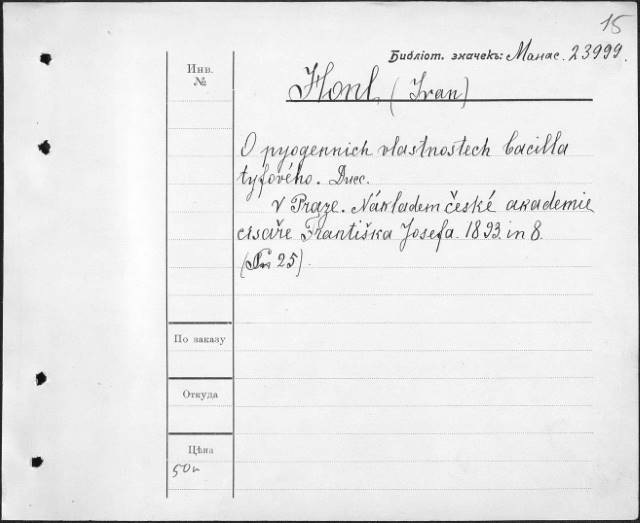 15
Библіот. значекъ: Манас. 23999.
Инв.
№
Honl, (Ivan)
O pyogenních vlastnostech bacilla
tyfového. Дисс.
v Praze. Nákladem české akademie
císaře Františka Josefa. 1893. in 8.
25).
По заказу
Откуда
Цѣна
50